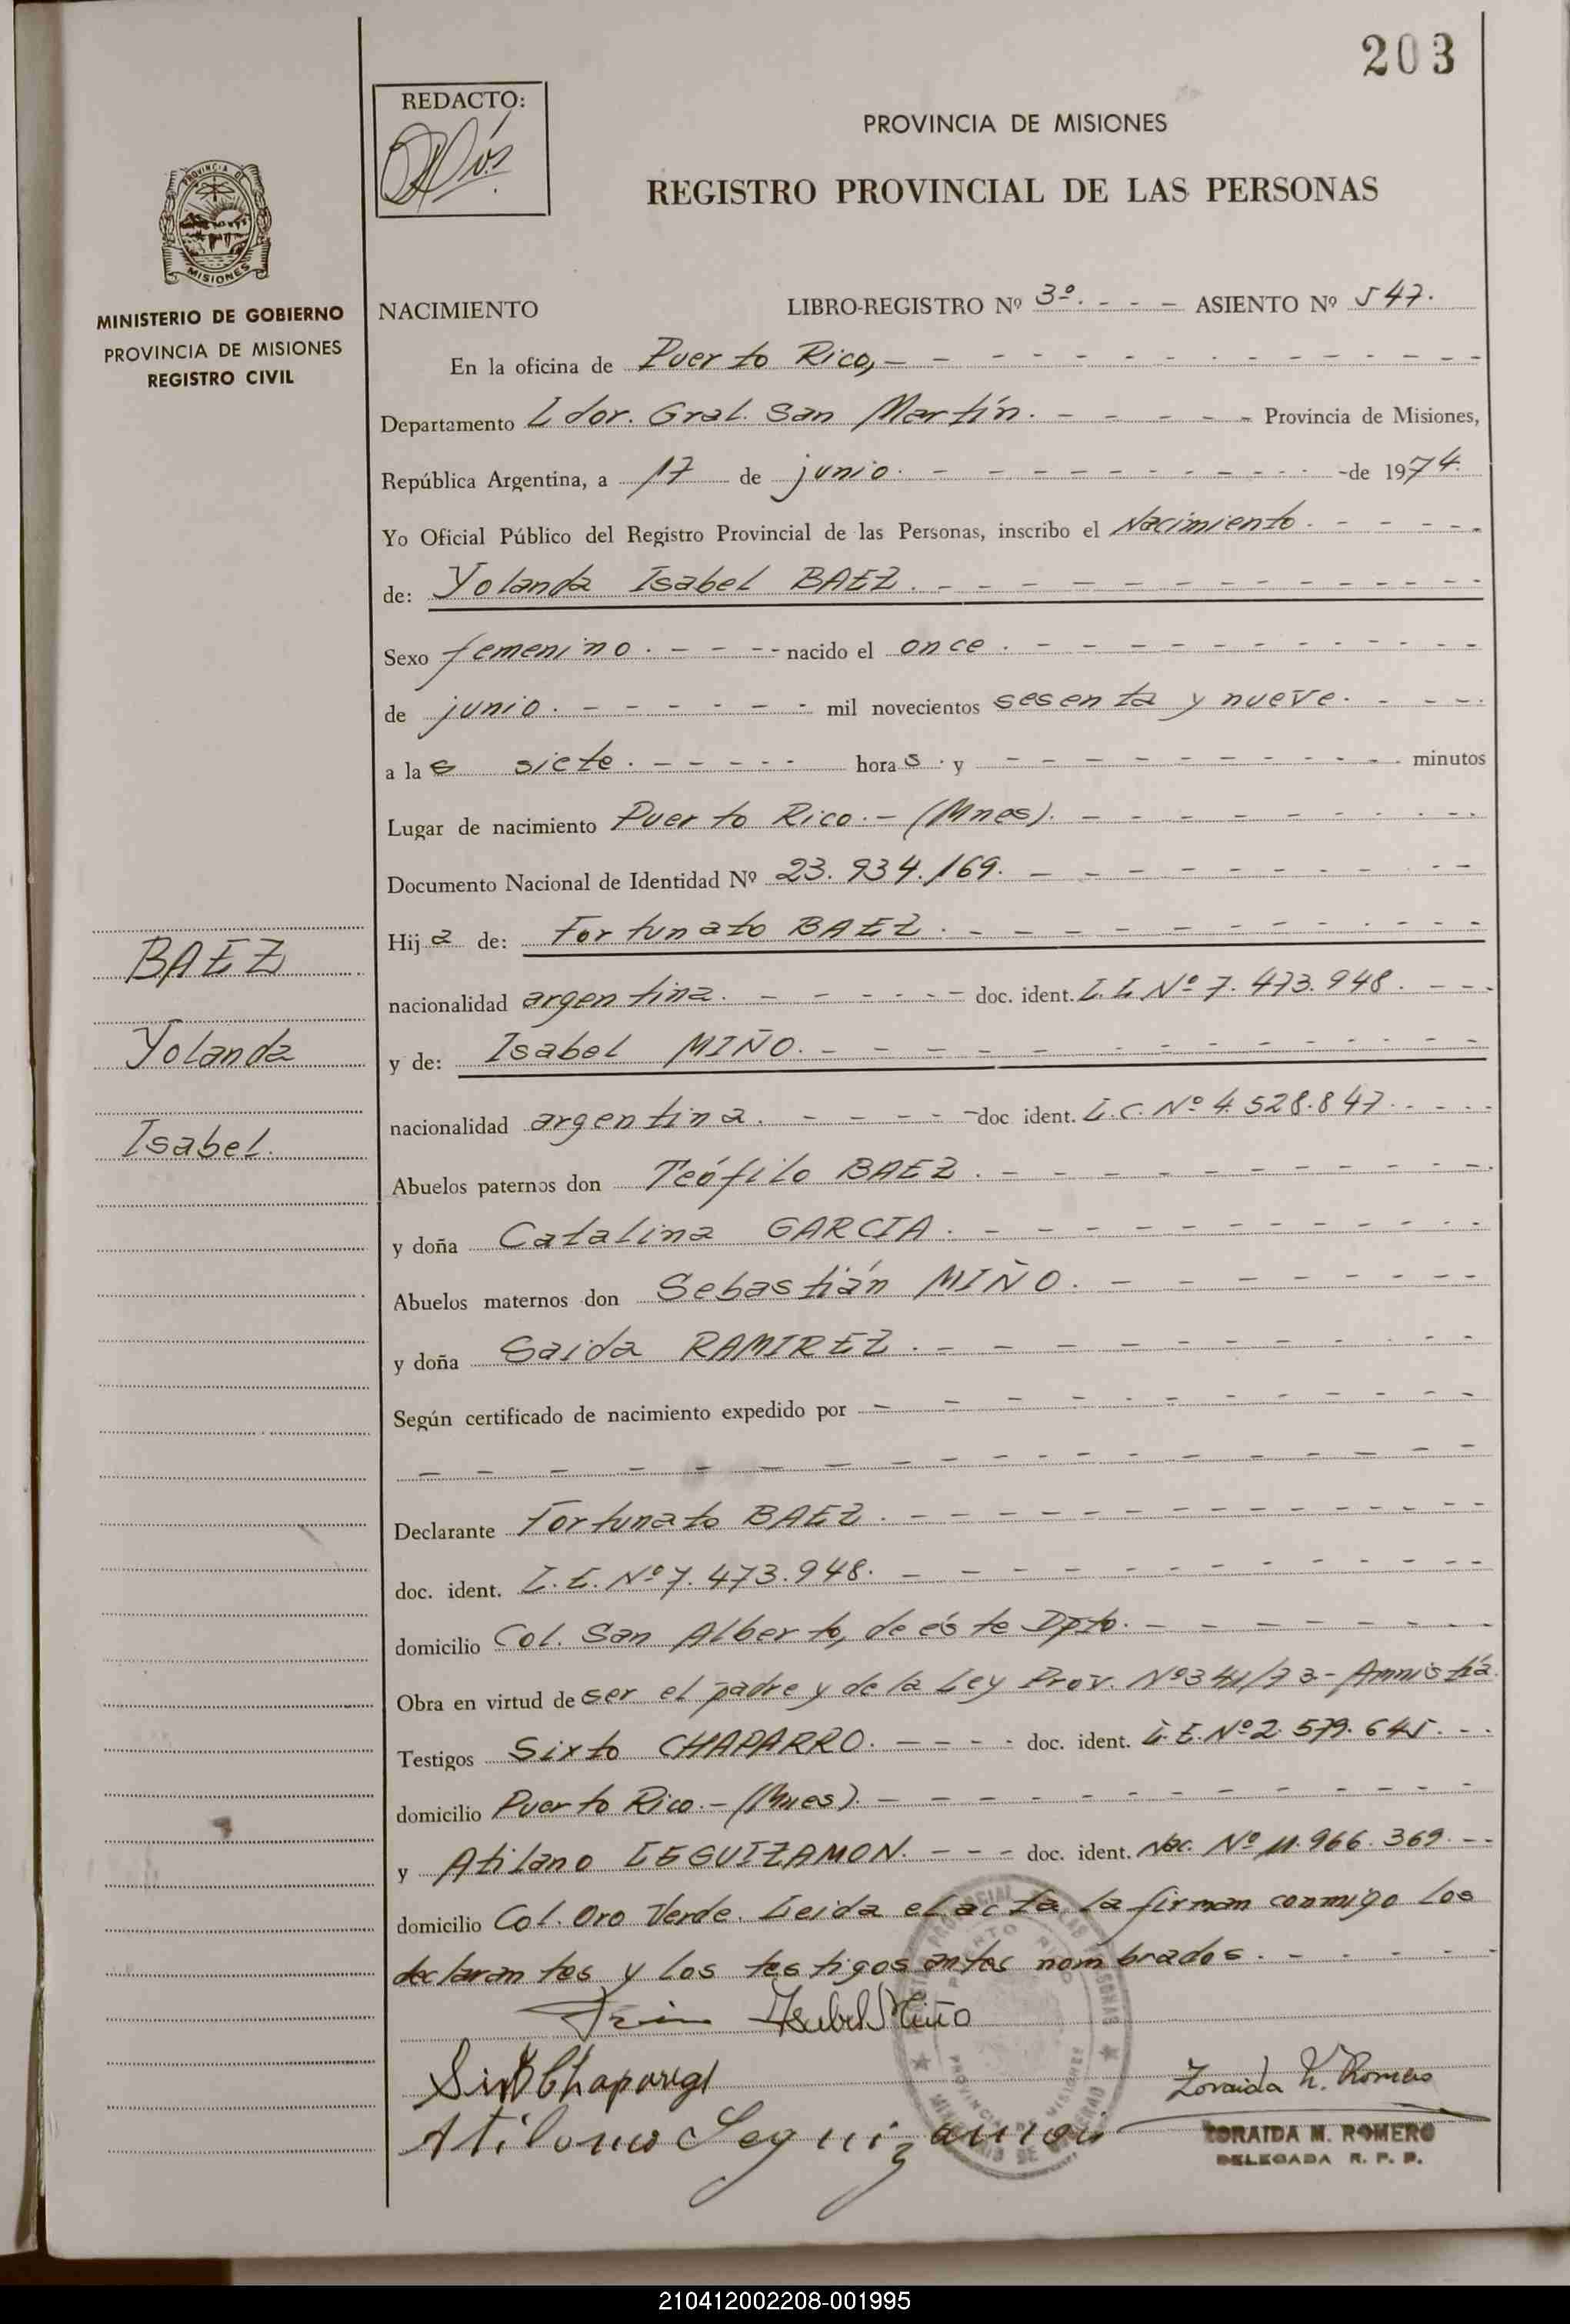 203
REDACTO:
PROVINCIA DE MISIONES
REGISTRO PROVINCIAL DE LAS PERSONAS
PROVINCIA DE
MISIONES
MINISTERIO DE GOBIERNO
PROVINCIA DE MISIONES
REGISTRO CIVIL
NACIMIENTO LIBRO-REGISTRO Nº 3º. - - - ASIENTO Nº 547.
En la oficina de Puerto Rico,
Departamento Ldor. Gral. San Martín. Provincia de Misiones,
República Argentina, a 17 de junio. de 1974.
Yo Oficial Público del Registro Provincial de las Personas, inscribo el Nacimiento.
de: Yolanda Isabel BAEZ.
Sexo femenino. nacido el once.
de junio. mil novecientos sesenta y nueve.
a las siete. horas. y minutos
Lugar de nacimiento Puerto Rico.- (Mnes).
Documento Nacional de Identidad Nº 23.934.169.
Hija de: Fortunato BAEZ.
nacionalidad argentina. doc. ident. L.E. Nº 7.473.948.
y de: Isabel MIÑO.
nacionalidad argentina. doc ident. L.C. Nº 4.528.847.
Abuelos paternos don Teófilo BAEZ.
y doña Catalina GARCIA.
Abuelos maternos don Sebastián MIÑO.
y doña Saida RAMIREZ.
Según certificado de nacimiento expedido por
Declarante Fortunato BAEZ.
doc. ident. L.E. Nº 7.473.948.
domicilio Col. San Alberto, de éste Dpto.
Obra en virtud de ser el padre y de la Ley Prov. Nº 341/73- Amnistía.
Testigos Sixto CHAPARRO. doc. ident. L.E. Nº 2.579.645.
domicilio Puerto Rico.- (Mnes).
y Atilano LEGUIZAMON. doc. ident. Nac. Nº 11.966.369.
domicilio Col. Oro Verde. Leida el acta, la firman conmigo los
declarantes y los testigos antes nombrados.
BAEZ
Yolanda
Isabel.
Isabel Miño
Zoraida M. Romero
Atilano Leguizamon
ZORAIDA M. ROMERO
DELEGADA R. P. P.
210412002208-001995